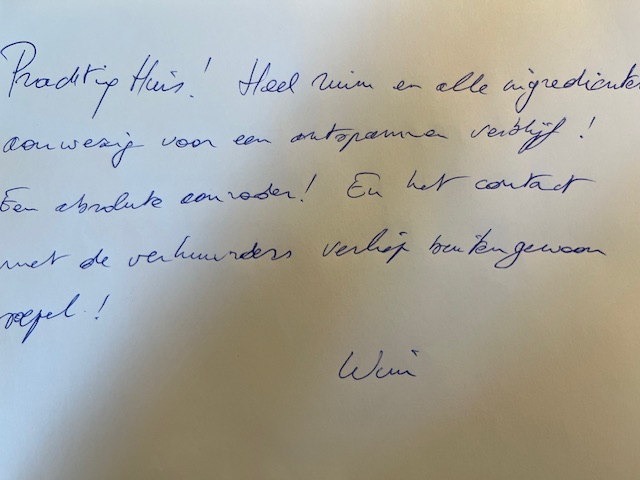 Prachtig Huis! Heel ruim en alle ingrediënten
aanwezig voor een ontspannen verblijf!
Een absolute aanrader! En het contact
met de verhuurders verliep buitengewoon
soepel!
Wim